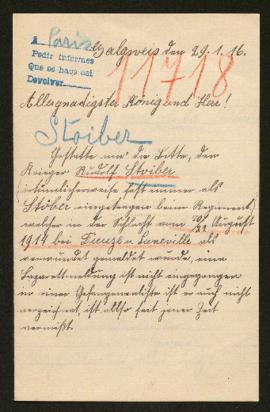 A Paris
Pedir informes
Que se haga así
Devolver
Galgweis den 29.1.16.
11718
Allergnädigster König und Herr!
Stoiber
Gestatte mir die Bitte, den
Krieger Rudolf Stoiber
irrtümlicherweise fast immer als
Stöber eingetragen beim Regiment,
welcher in der Schlacht vom August
1914 bei Luneville als
verwundet gemeldet wurde, eine
Lazarettmeldung ist nicht eingegangen
in einer Gefangenenliste ist er auch nicht
verzeichnet, ist allso seit jener Zeit
vermißt.